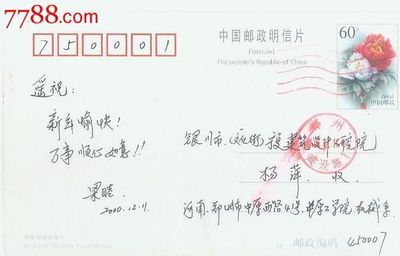 7788.com
750001
中国邮政明信片
Postcard
The people's Republic of China
60分
CHINA
中国邮政
遥祝:
新年愉快!
万事顺心如意!!
梁晓
2000.12.11
银川市(文化街)投建筑设计研究院
杨萍 收
河南 郑州市中原西路41号 中原工学院 机械系
邮政编码 450007